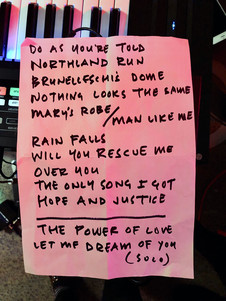 DO AS YOU'RE TOLD
NORTHLAND RUN
BRUNELLESCHI'S DOME
NOTHING LOOKS THE SAME
MARY'S ROBE/MAN LIKE ME
RAIN FALLS
WILL YOU RESCUE ME
OVER YOU
THE ONLY SONG I GOT
HOPE AND JUSTICE
THE POWER OF LOVE
LET ME DREAM OF YOU
(SOLO)